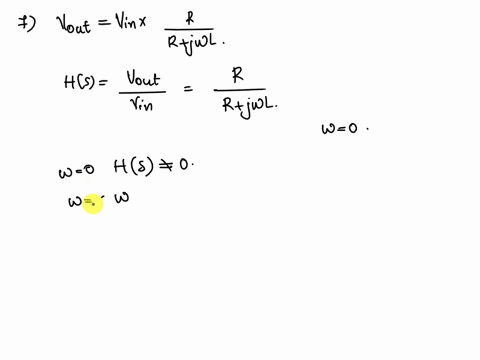 7) Vout = Vin x R / R+jωL.
H(s) = Vout / Vin = R / R+jωL.
ω=0.
ω=0 H(s) ≠ 0.
ω= ω